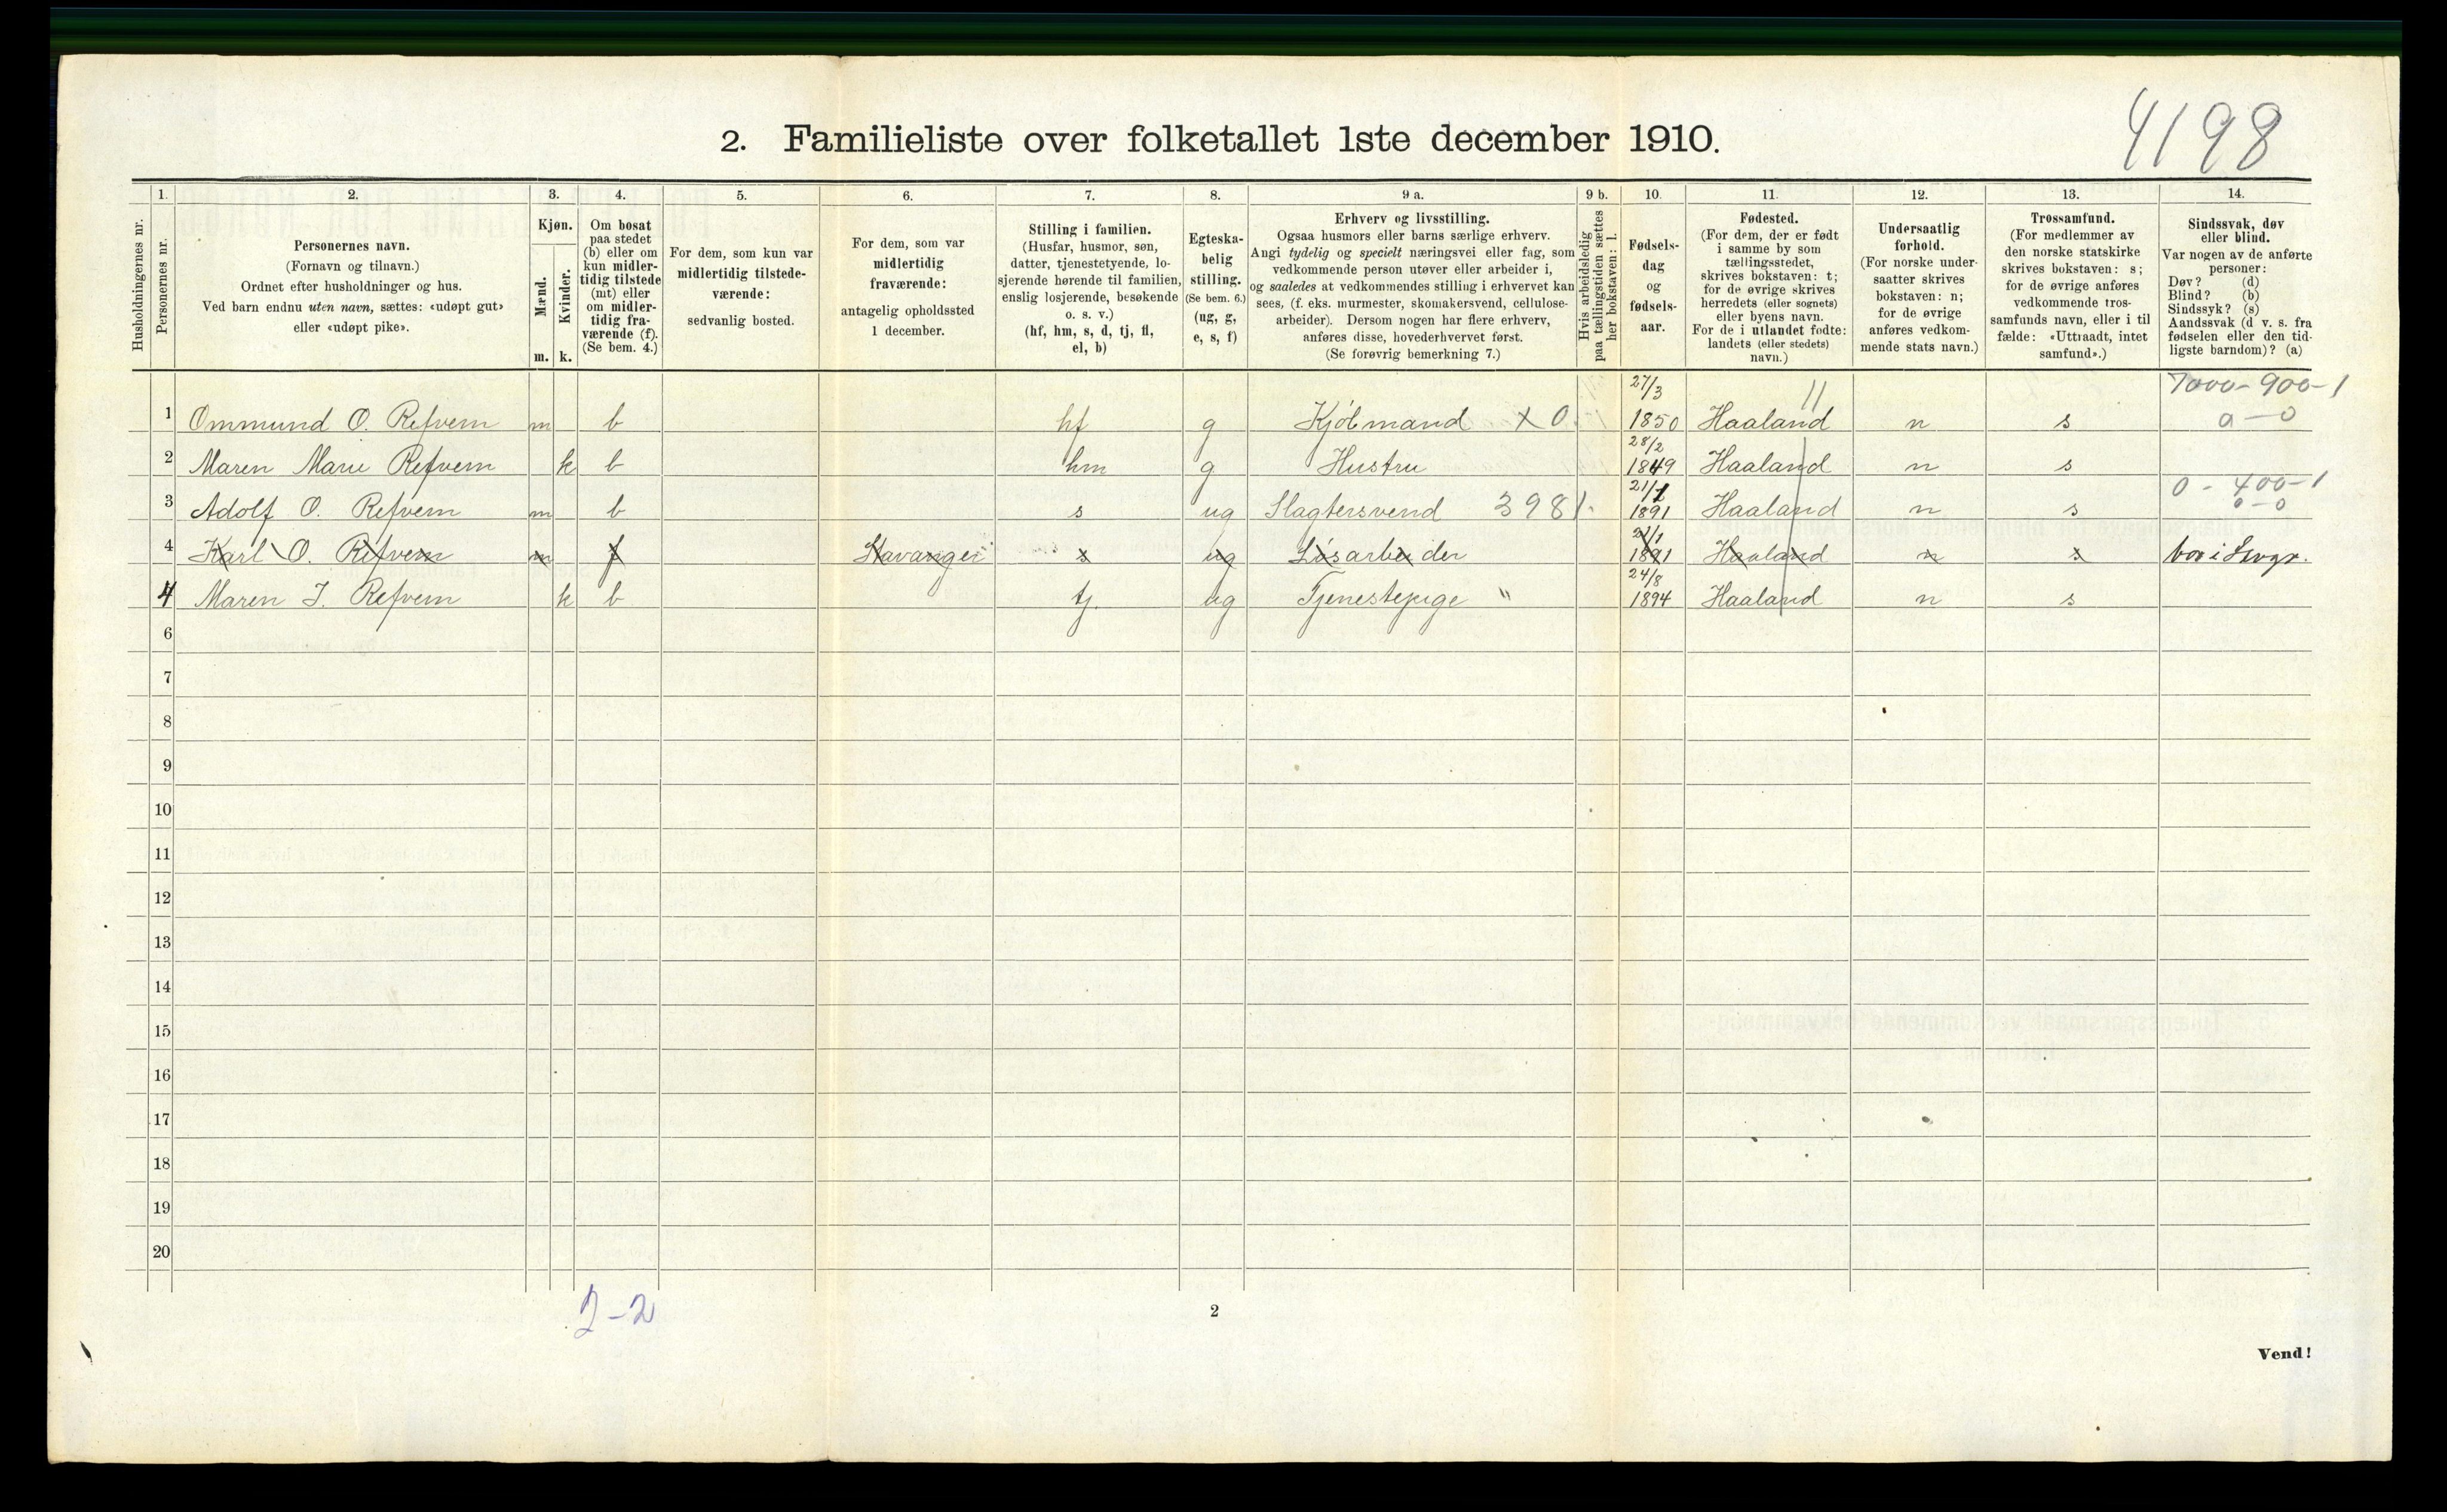 4198
2. Familieliste over folketallet 1ste december 1910.
1. 2. 3. 4. 5. 6. 7. 8. 9 a. 9 b. 10. 11. 12. 13. 14.
Husholdningernes nr.
Personernes nr.
Personernes navn.
(Fornavn og tilnavn.)
Ordnet efter husholdninger og hus.
Ved barn endnu uten navn, sættes: «udøpt gut»
eller «udøpt pike».
Kjøn.
Mænd.
Kvinder.
m. k.
Om bosat
paa stedet
(b) eller om
kun midler-
tidig tilstede
(mt) eller
om midler-
tidig fra-
værende (f).
(Se bem. 4.)
For dem, som kun var
midlertidig tilstede-
værende:
sedvanlig bosted.
For dem, som var
midlertidig
fraværende:
antagelig opholdssted
1 december.
Stilling i familien.
(Husfar, husmor, søn,
datter, tjenestetyende, lo-
sjerende hørende til familien,
enslig losjerende, besøkende
o. s. v.)
(hf, hm, s, d, tj, fl,
el, b)
Egteska-
belig
stilling.
(Se bem. 6.)
(ug, g,
e, s, f)
Erhverv og livsstilling.
Ogsaa husmors eller barns særlige erhverv.
Angi tydelig og specielt næringsvei eller fag, som
vedkommende person utøver eller arbeider i,
og saaledes at vedkommendes stilling i erhvervet kan
sees, (f. eks. murmester, skomakersvend, cellulose-
arbeider). Dersom nogen har flere erhverv,
anføres disse, hovederhvervet først.
(Se forøvrig bemerkning 7.)
Hvis arbeidsledig
paa tællingstiden sættes
her bokstaven: l.
Fødsels-
dag
og
fødsels-
aar.
Fødested.
(For dem, der er født
i samme by som
tællingsstedet,
skrives bokstaven: t;
for de øvrige skrives
herredets (eller sognets)
eller byens navn.
For de i utlandet fødte:
landets (eller stedets)
navn.)
Undersaatlig
forhold.
(For norske under-
saatter skrives
bokstaven: n;
for de øvrige
anføres vedkom-
mende stats navn.)
Trossamfund.
(For medlemmer av
den norske statskirke
skrives bokstaven: s;
for de øvrige anføres
vedkommende tros-
samfunds navn, eller i til
fælde: «Uttraadt, intet
samfund».)
Sindssvak, døv
eller blind.
Var nogen av de anførte
personer:
Døv? (d)
Blind? (b)
Sindssyk? (s)
Aandssvak (d v. s. fra
fødselen eller den tid-
ligste barndom)? (a)
27/3 11 7000-900-1
1 Ommund O. Refvem m b hf g Kjøbmand x 0 1850 Haaland n s a-0
28/2
2 Maren Marie Refvem k b hm g Hustru 1849 Haaland n s
21/1 0-400-1
3 Adolf O. Refvem m b s ug Slagtersvend 3981. 1891 Haaland n s 0-0
21/1
4 Karl O. Refvem m f Stavanger s ug Løsarbeider 1891 Haaland n s bor i Svgr.
24/8
4 Maren J. Refvem k b tj. ug Tjenestepige " 1894 Haaland n s
6
7
8
9
10
11
12
13
14
15
16
17
18
19
20
2-2
2
Vend!